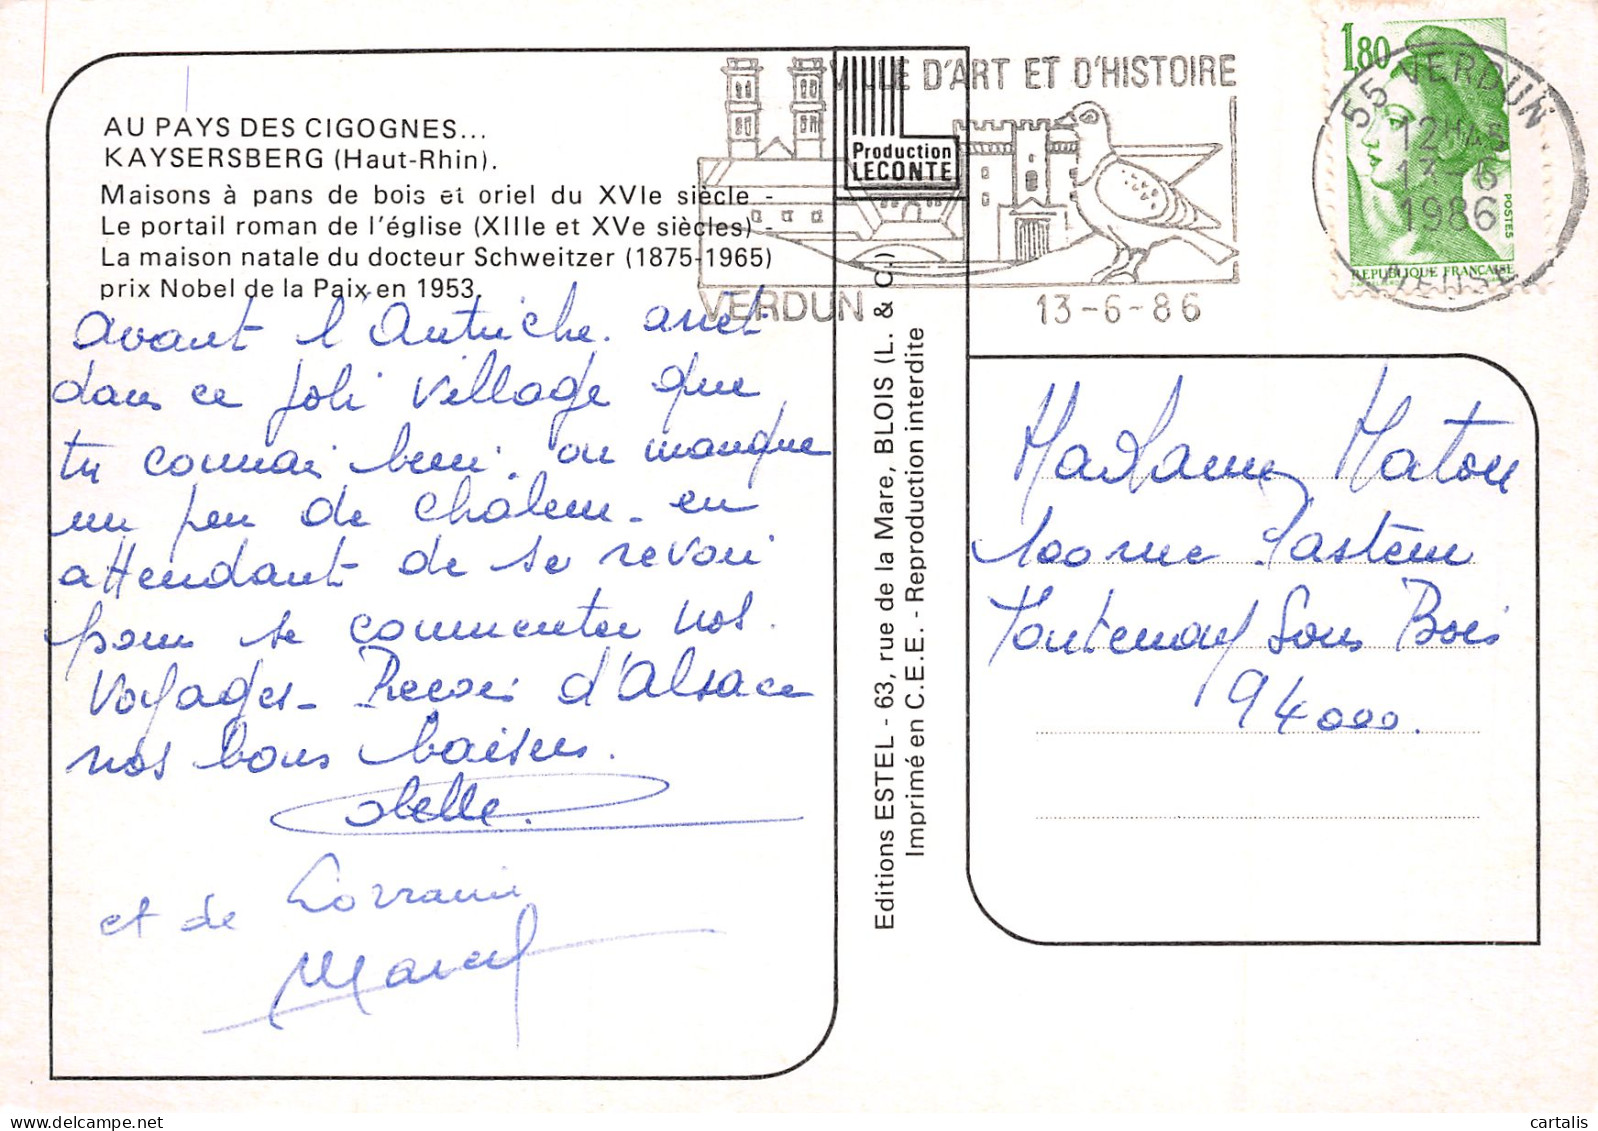 AU PAYS DES CIGOGNES...
KAYSERSBERG (Haut-Rhin).
Maisons à pans de bois et oriel du XVIe siècle -
Le portail roman de l'église (XIIIe et XVe siècles) -
La maison natale du docteur Schweitzer (1875-1965)
prix Nobel de la Paix en 1953.
avant l'Autriche. arrêt
dans ce joli village que
tu connai bien. on manque
un peu de chaleur - en
attendant de se revoir
pour se commenter nos
voyages - Recois d'Alsace
nos bons baisers.
et de Lorraine
Marcel
Production
LECONTE
Editions ESTEL - 63, rue de la Mare, BLOIS (L. & C.)
Imprimé en C.E.E. - Reproduction interdite
VILLE D'ART ET D'HISTOIRE
VERDUN
13-6-86
1,80
POSTES
REPUBLIQUE FRANÇAISE
55 VERDUN
12H45
13-6
1986
MEUSE
Madame Maton
100 rue Pasteur
Fontenay Sous Bois
94000.
cartalis